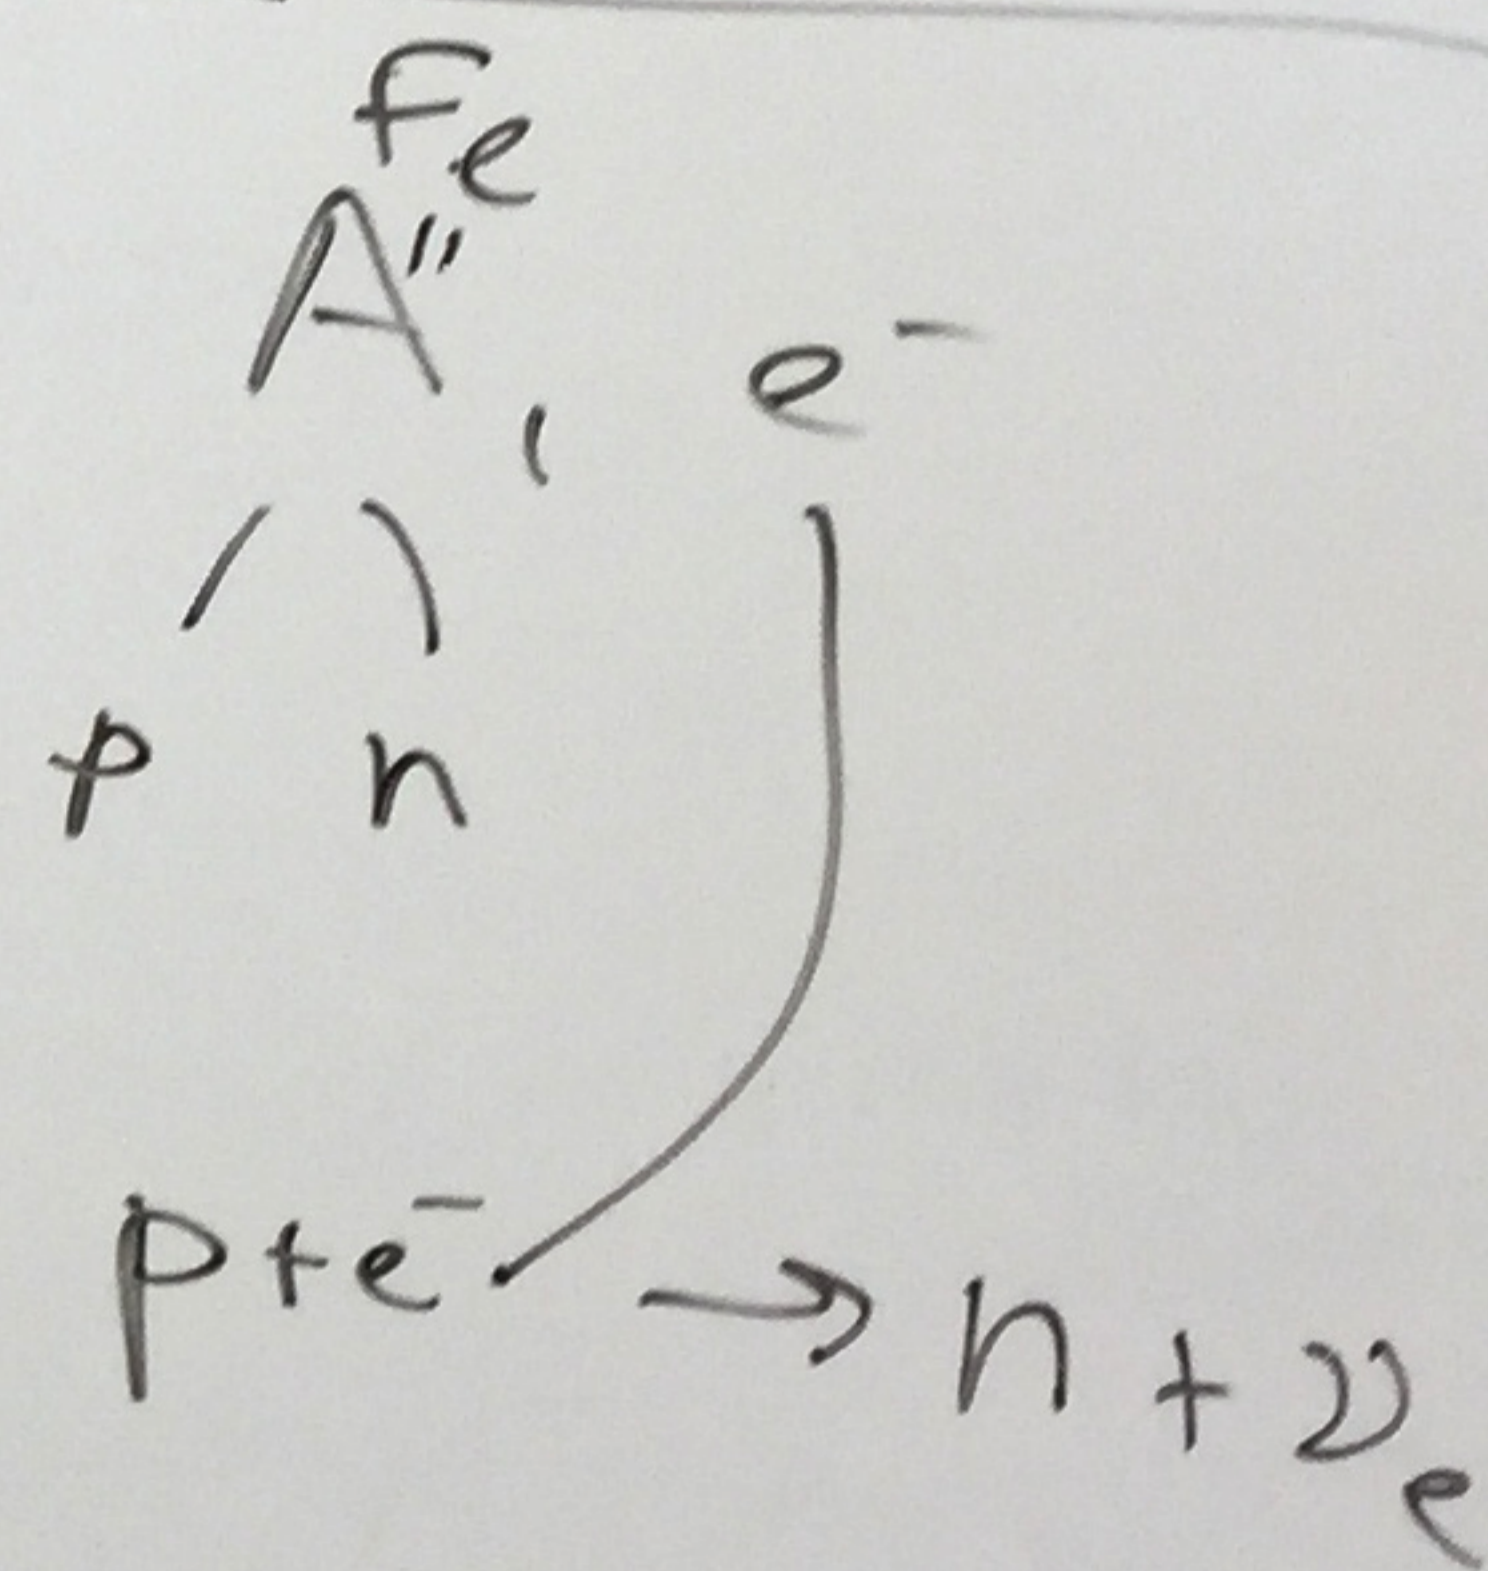 Fe
A" , e⁻
p n
p+e⁻ → n + νₑ